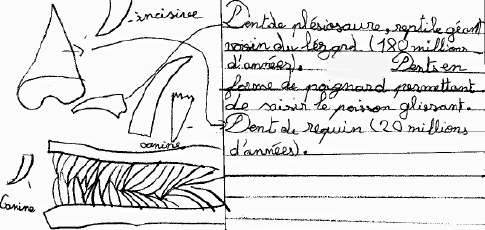 incisive
Dent de plésiosaure, reptile géant
voisin du lézard (180 millions
d'années). Dents en
forme de poignard permettant
de saisir le poisson glissant.
canine
Dent de requin (20 millions
d'années).
Canine